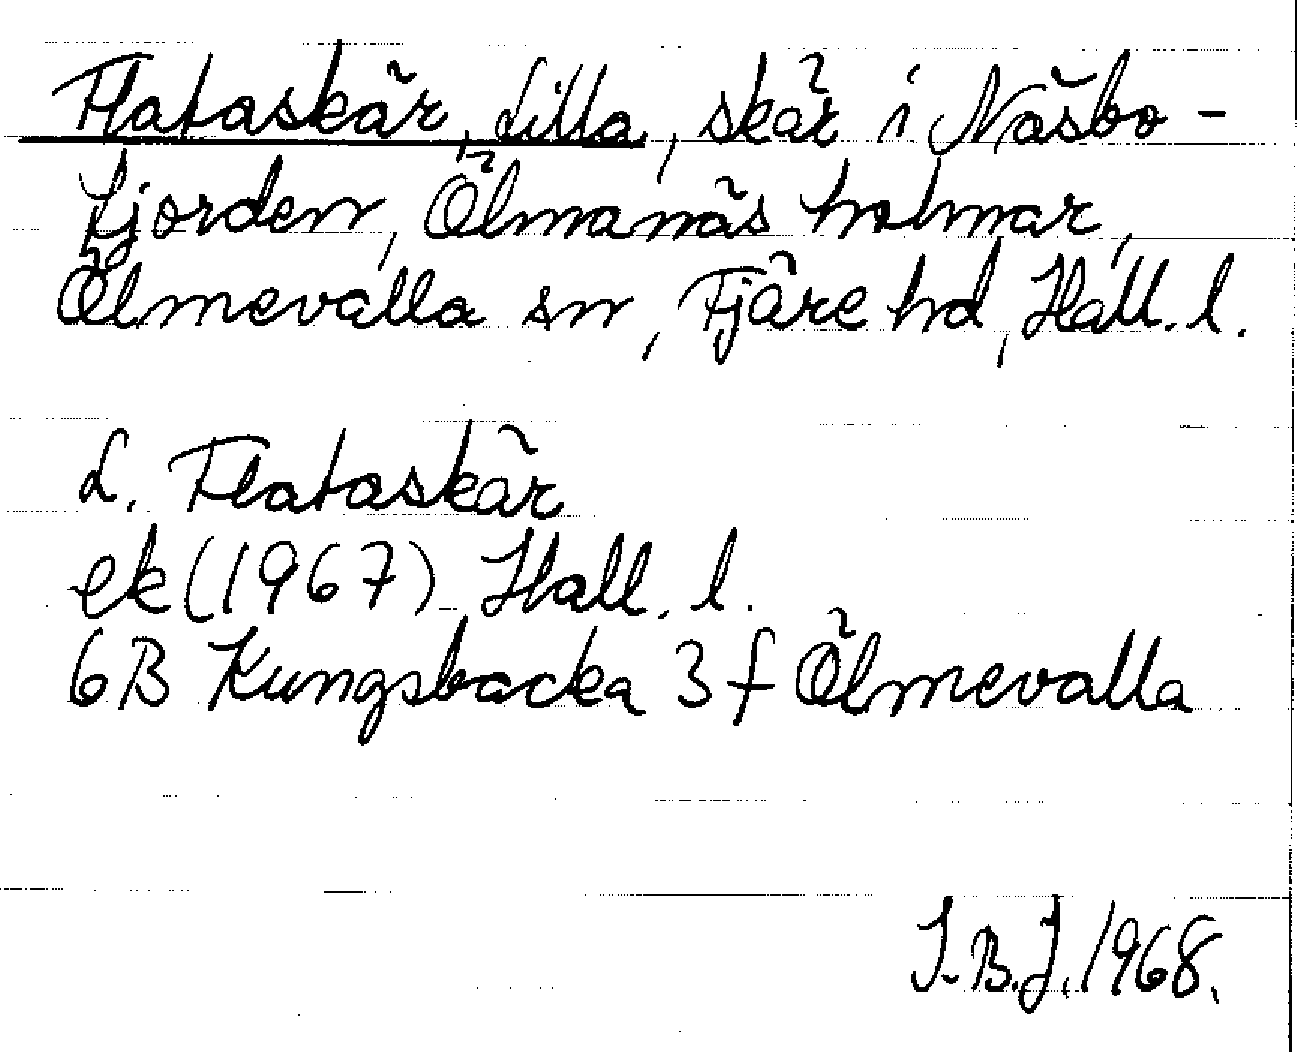 Flataskär, Lilla, skär i Näsbo-
fjorden, Ölmanäs holmar,
Ölmevalla sn, Fjäre hd, Hall. l.
L. Flataskär
ek (1967) Hall. l.
6B Kungsbacka 3f Ölmevalla
I.B.J. 1968.